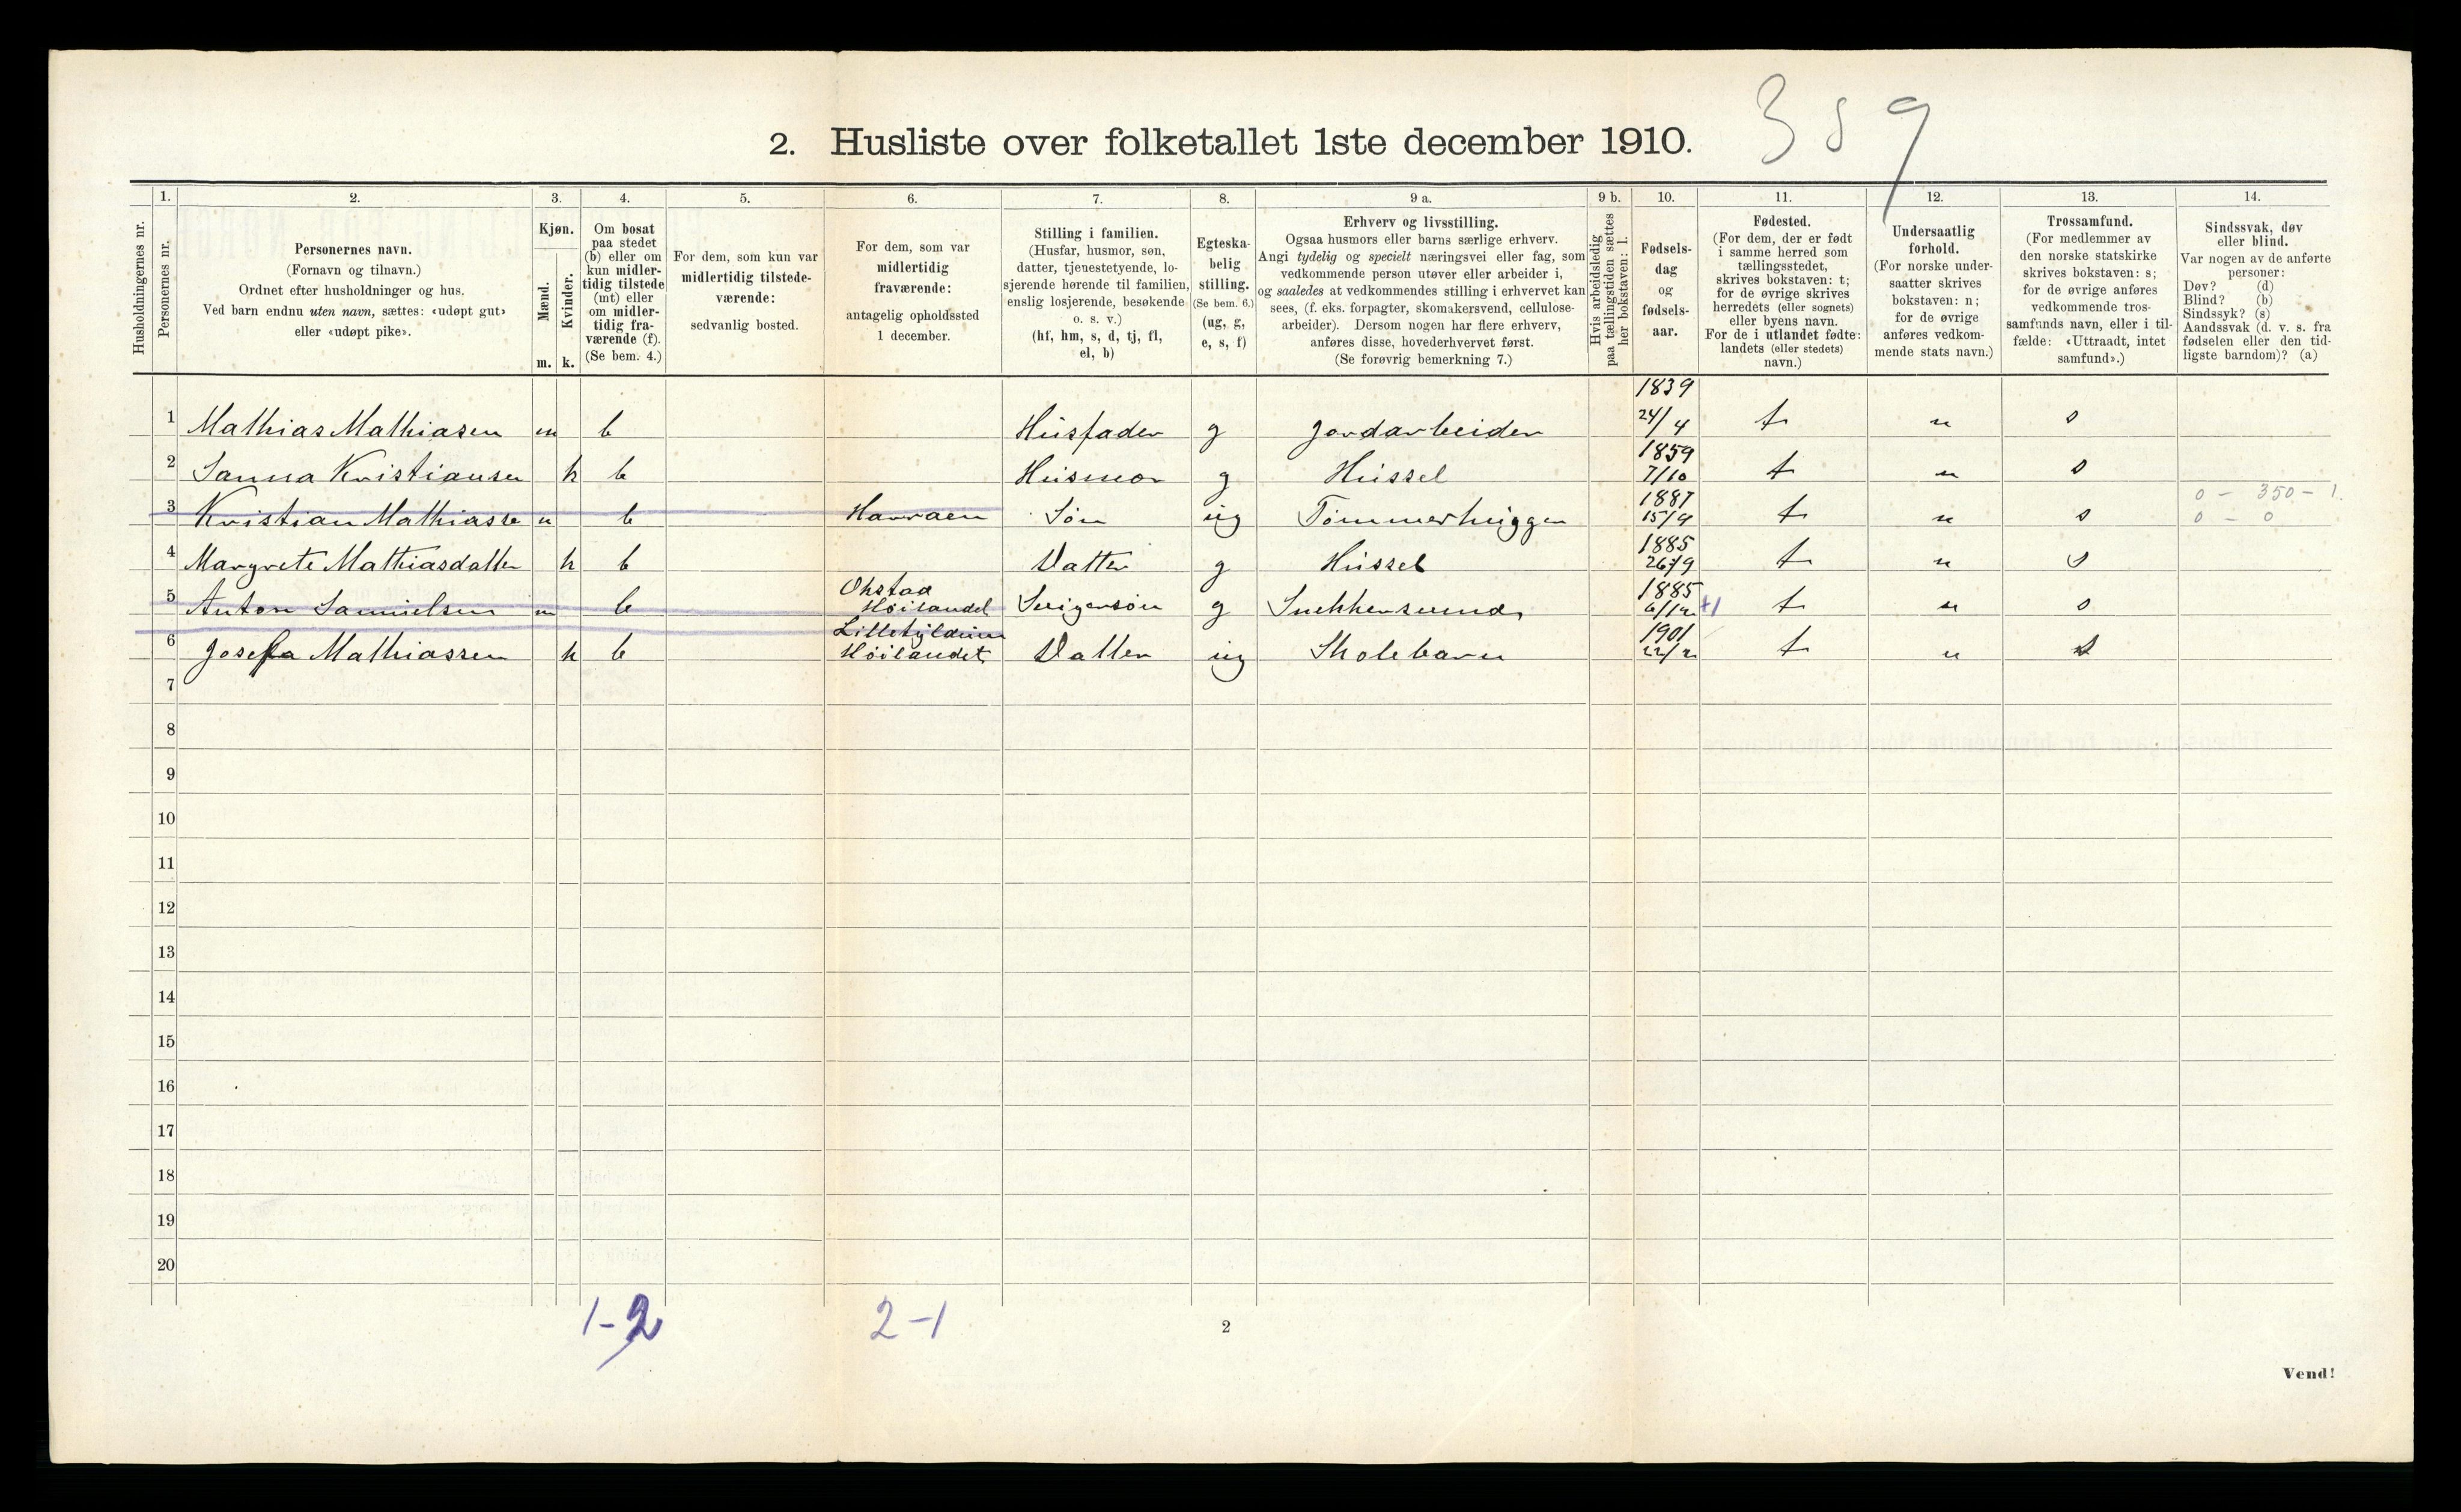 389
2. Husliste over folketallet 1ste december 1910.
Husholdningernes nr.
1.
Personernes nr.
2.
Personernes navn.
(Fornavn og tilnavn.)
Ordnet efter husholdninger og hus.
Ved barn endnu uten navn, sættes: «udøpt gut»
eller «udøpt pike».
3.
Kjøn.
Mænd.
Kvinder.
m. k.
4.
Om bosat
paa stedet
(b) eller om
kun midler-
tidig tilstede
(mt) eller
om midler-
tidig fra-
værende (f).
(Se bem. 4.)
5.
For dem, som kun var
midlertidig tilstede-
værende:
sedvanlig bosted.
6.
For dem, som var
midlertidig
fraværende:
antagelig opholdssted
1 december.
7.
Stilling i familien.
(Husfar, husmor, søn,
datter, tjenestetyende, lo-
sjerende hørende til familien,
enslig losjerende, besøkende
o. s. v.)
(hf, hm, s, d, tj, fl,
el, b)
8.
Egteska-
belig
stilling.
(Se bem. 6.)
(ug, g,
e, s, f)
9 a.
Erhverv og livsstilling.
Ogsaa husmors eller barns særlige erhverv.
Angi tydelig og specielt næringsvei eller fag, som
vedkommende person utøver eller arbeider i,
og saaledes at vedkommendes stilling i erhvervet kan
sees, (f. eks. forpagter, skomakersvend, cellulose-
arbeider). Dersom nogen har flere erhverv,
anføres disse, hovederhvervet først.
(Se forøvrig bemerkning 7.)
9 b.
Hvis arbeidsledig
paa tællingstiden sættes
her bokstaven: l.
10.
Fødsels-
dag
og
fødsels-
aar.
11.
Fødested.
(For dem, der er født
i samme herred som
tællingsstedet,
skrives bokstaven: t;
for de øvrige skrives
herredets (eller sognets)
eller byens navn.
For de i utlandet fødte:
landets (eller stedets)
navn.)
12.
Undersaatlig
forhold.
(For norske under-
saatter skrives
bokstaven: n;
for de øvrige
anføres vedkom-
mende stats navn.)
13.
Trossamfund.
(For medlemmer av
den norske statskirke
skrives bokstaven: s;
for de øvrige anføres
vedkommende tros-
samfunds navn, eller i til-
fælde: «Uttraadt, intet
samfund».)
14.
Sindssvak, døv
eller blind.
Var nogen av de anførte
personer:
Døv? (d)
Blind? (b)
Sindssyk? (s)
Aandssvak (d. v. s. fra
fødselen eller den tid-
ligste barndom)? (a)
1 Mathias Mathiasen m b Husfader g Jordarbeider 1839 24/4 t n s
2 Sanna Kristiansen k b Husmor g Hussel 1859 7/10 t n s
3 Kristian Mathiasse m b Havraen Søn ug Tømmerhugger 1887 15/9 t n s 0 - 350 - 1. 0 - 0
4 Margrete Mathiasdatter k b Datter g Hussel 1885 26/9 t n s
5 Anton Samuelsen m b Høilandet Svigersøn g Snekkersvend 1885 t n s
6 Josefa Mathiassen k b Høilandet Datter ug Skolebarn 1901 t n s
7
8
9
10
11
12
13
14
15
16
17
18
19
20
1-2
2-1
2
Vend!